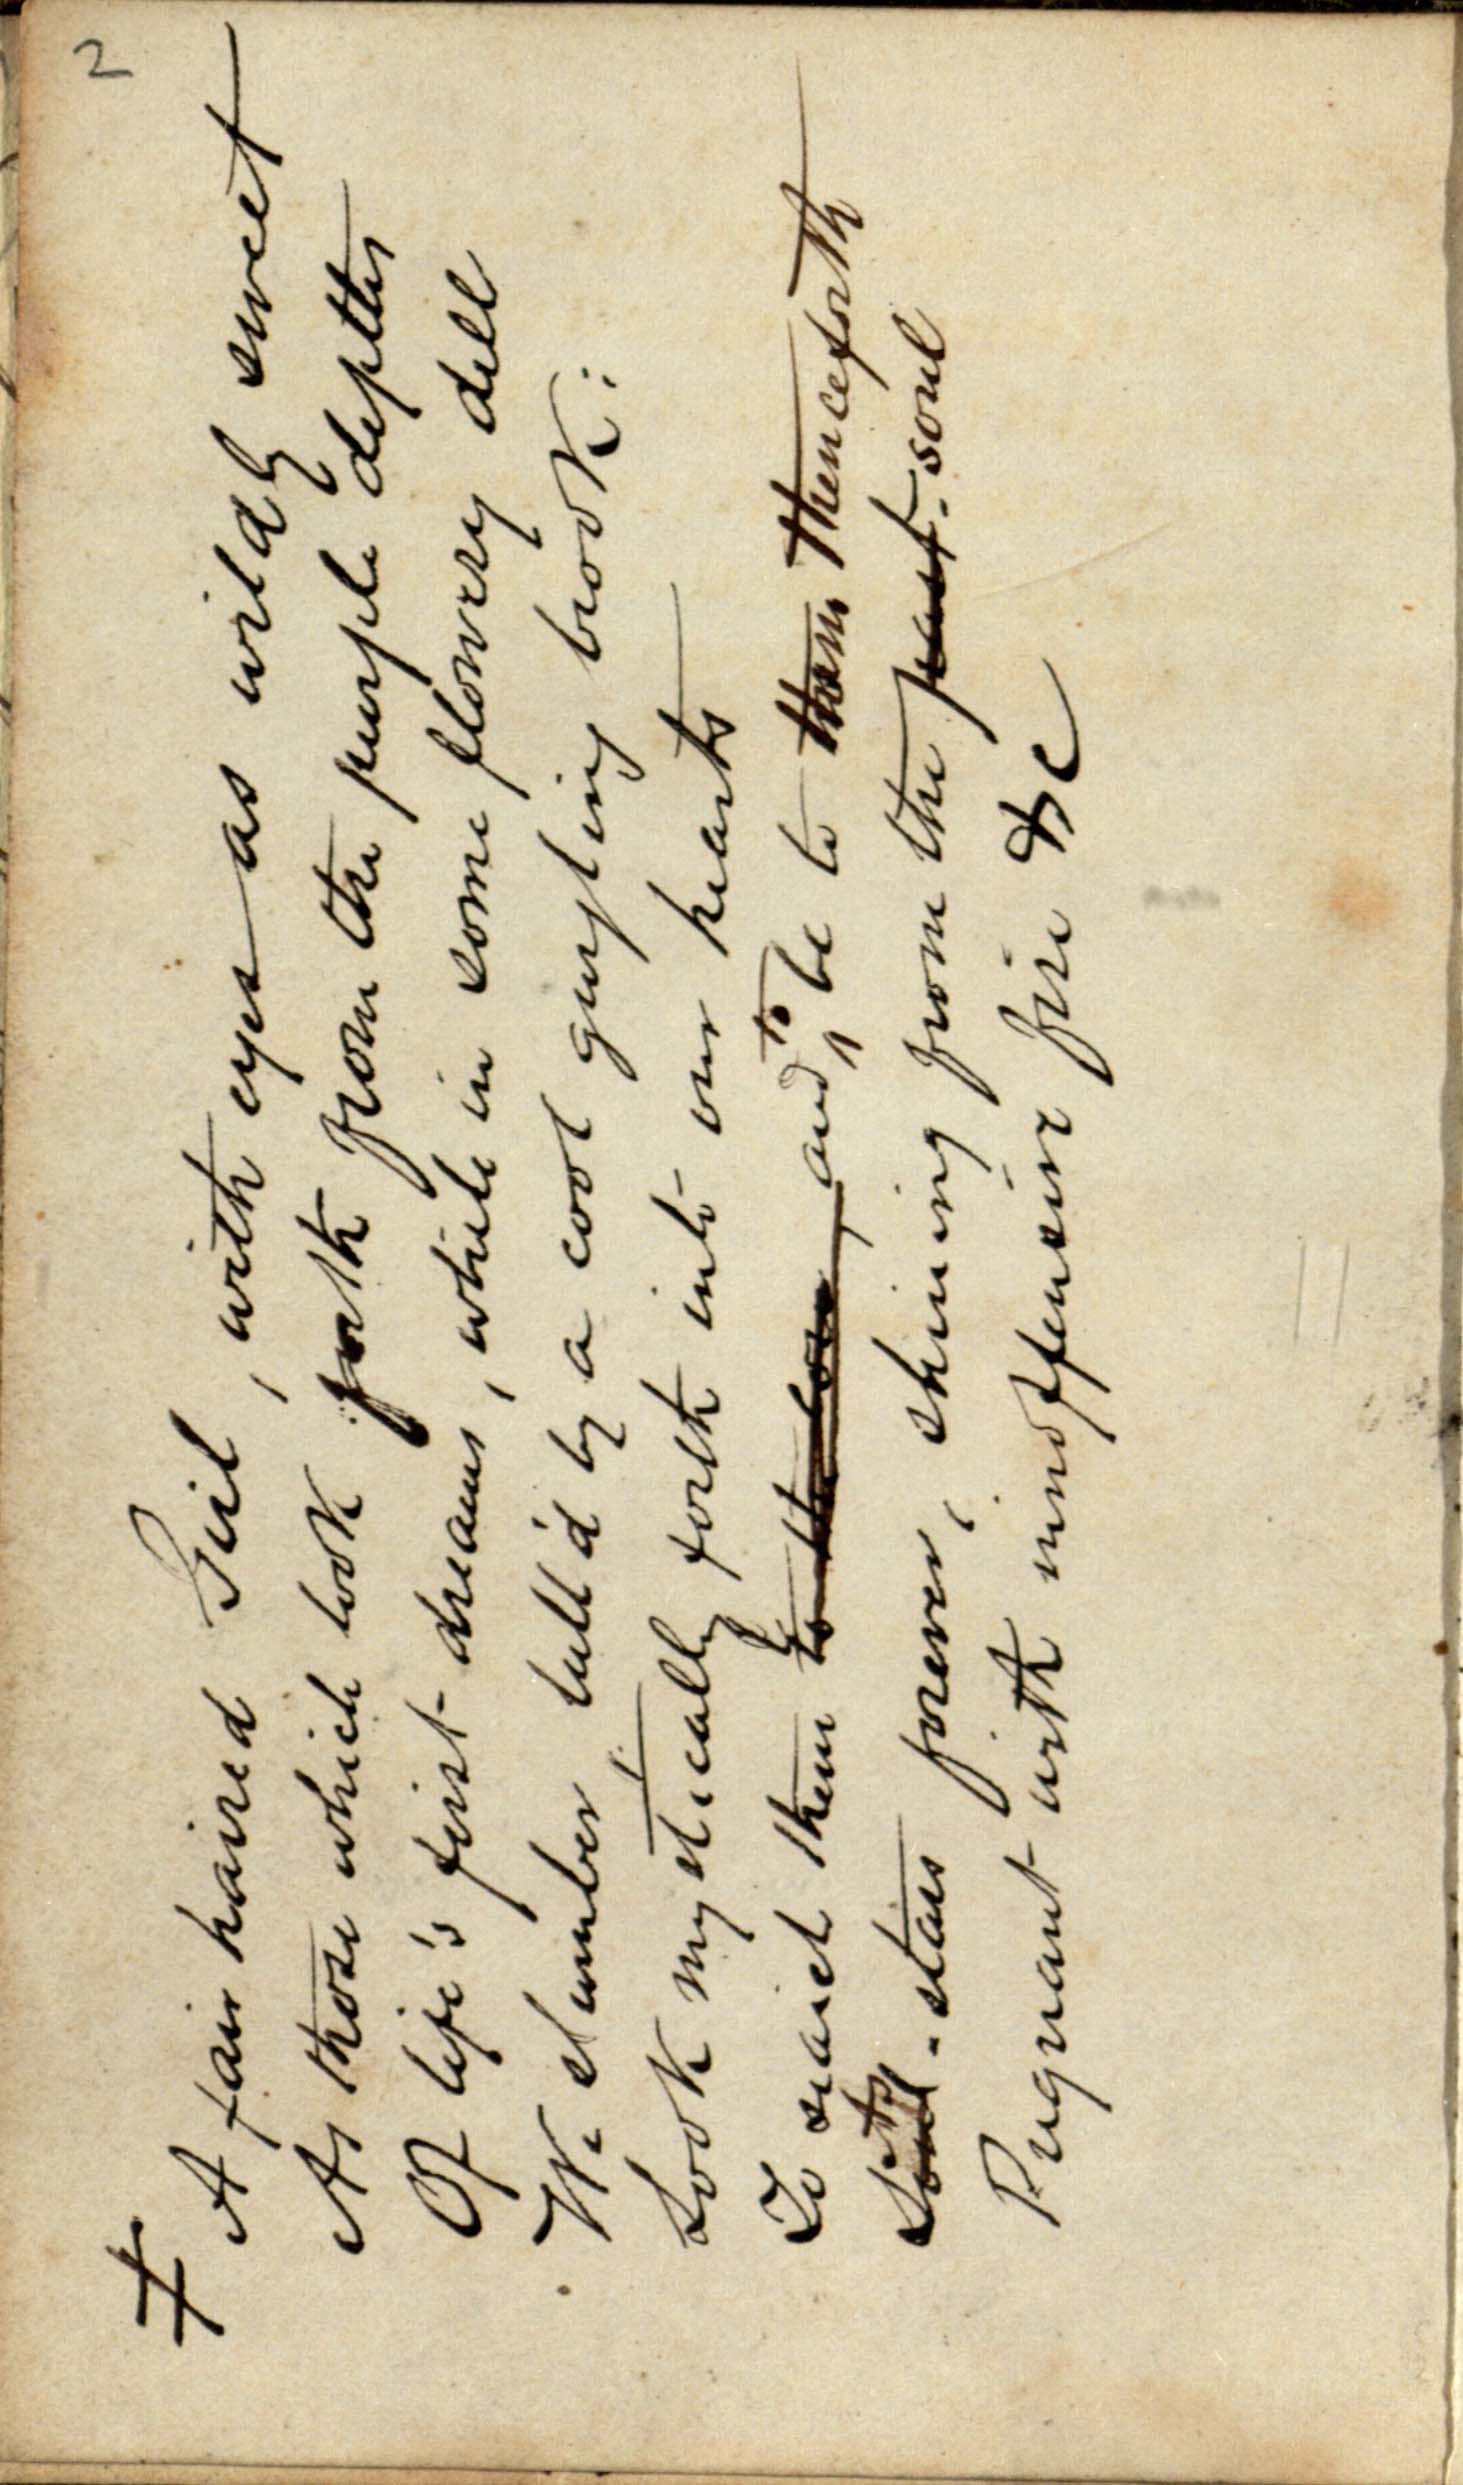 2
A fair haired Girl, with eyes as wildly sweet
As those which look forth from the purple depths
Of life's first dreams, while in some flowery dell
We slumber lull'd by a cool gurgling brook:
Look mystically forth into our hearts
To reach them to the core, and to be to them thenceforth
Its - stars forever, shining from the past - soul
Pregnant with unoffensive fire &c